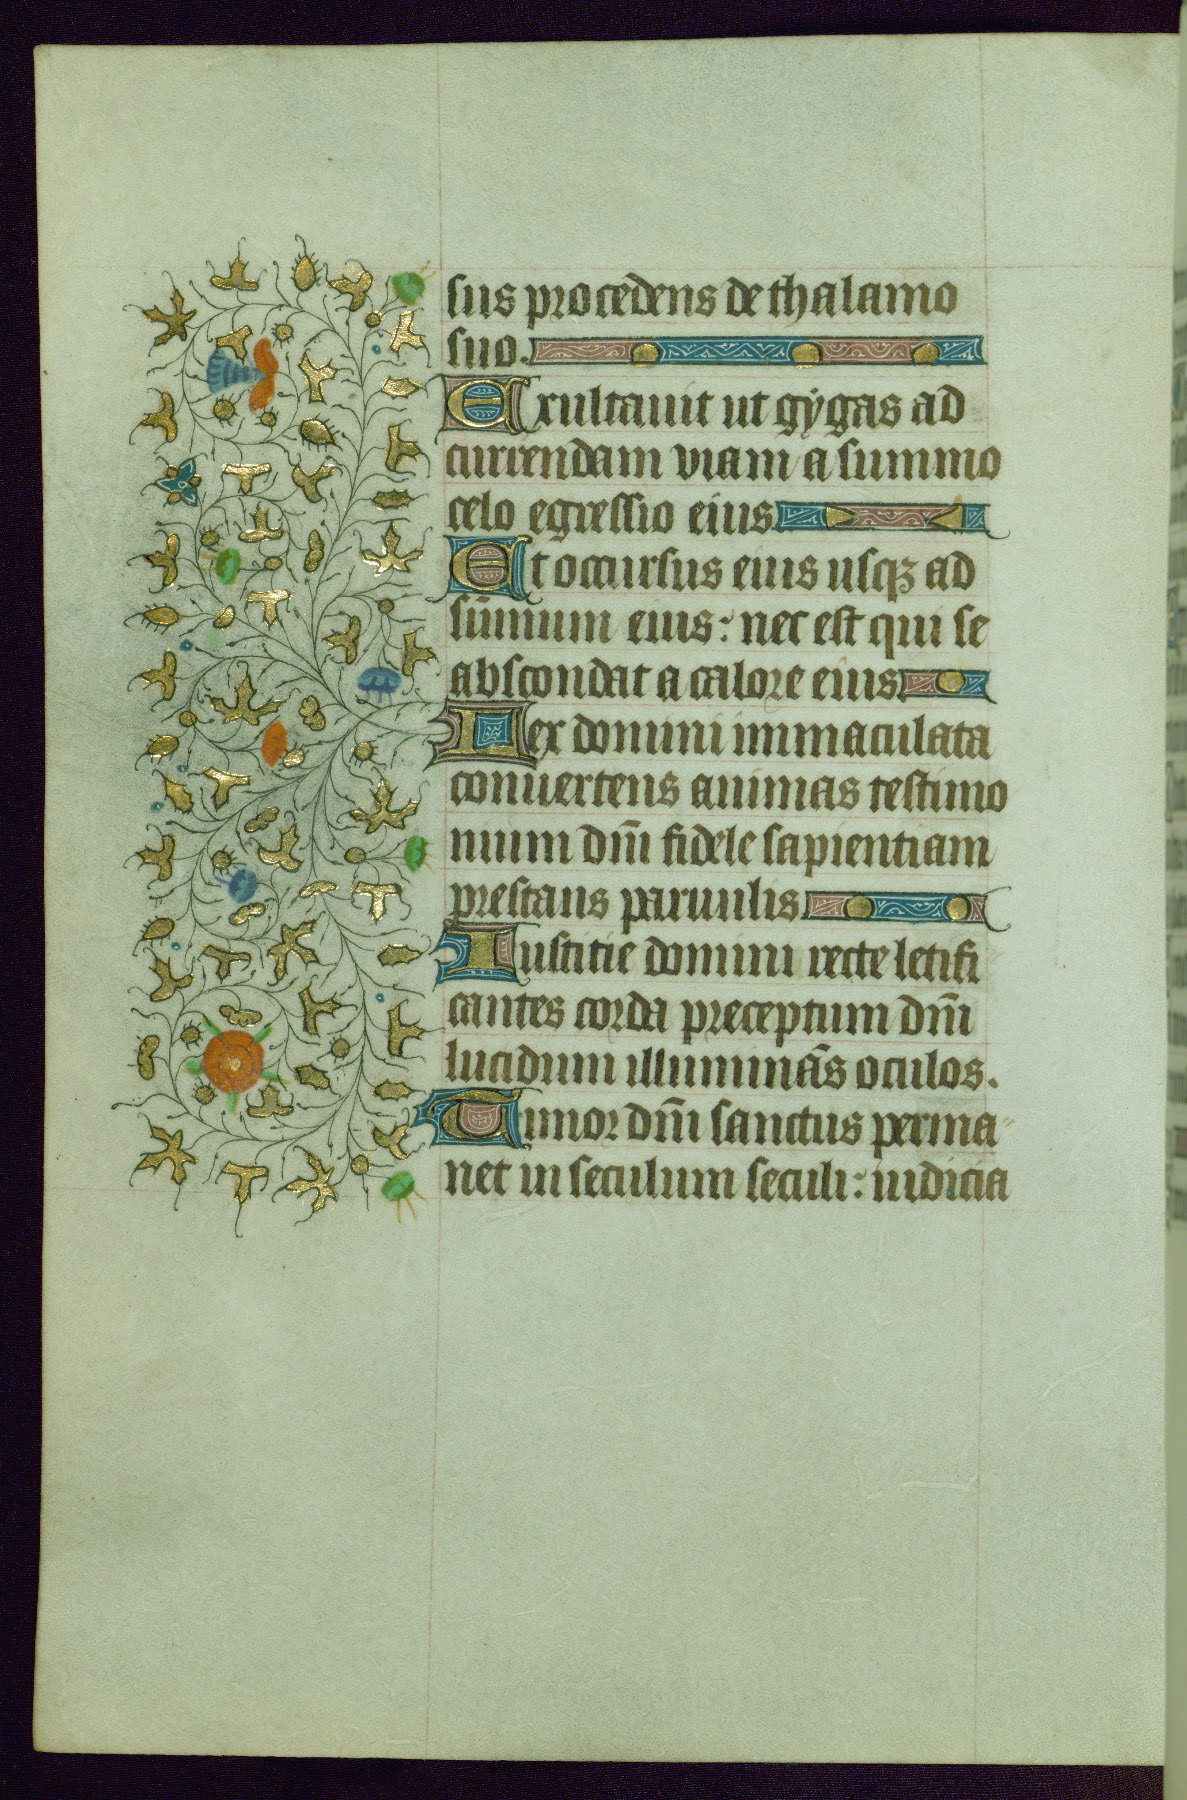 sus procedens de thalamo
suo.
Exultauit ut gygas ad
currendam viam a summo
celo egressio eius
Et occursus eius usqꝫ ad
sūmum eius: nec est qui se
abscondat a calore eius
Lex domini immaculata
conuertens animas testimo
nium dn̄i fidele sapientiam
prestans paruulis
Iustitie domini recte letifi
cantes corda preceptum dn̄i
lucidum illuminās oculos.
Timor dn̄i sanctus perma
net in seculum seculi: iudicia